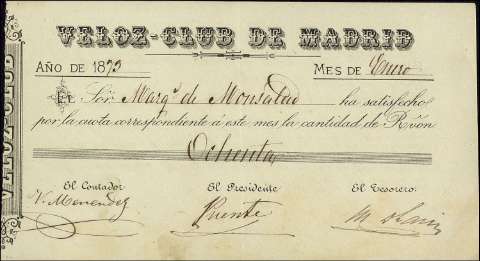 VELOZ-CLUB DE MADRID
AÑO DE 1873 MES DE Enero
El Sör. Marqs. de Monsalud ha satisfecho
por la cuota correspondiente á este mes la cantidad de Rvön
Ochenta
El Contador El Presidente El Tesorero
V. Menendez Puente
VELOZ-CLUB